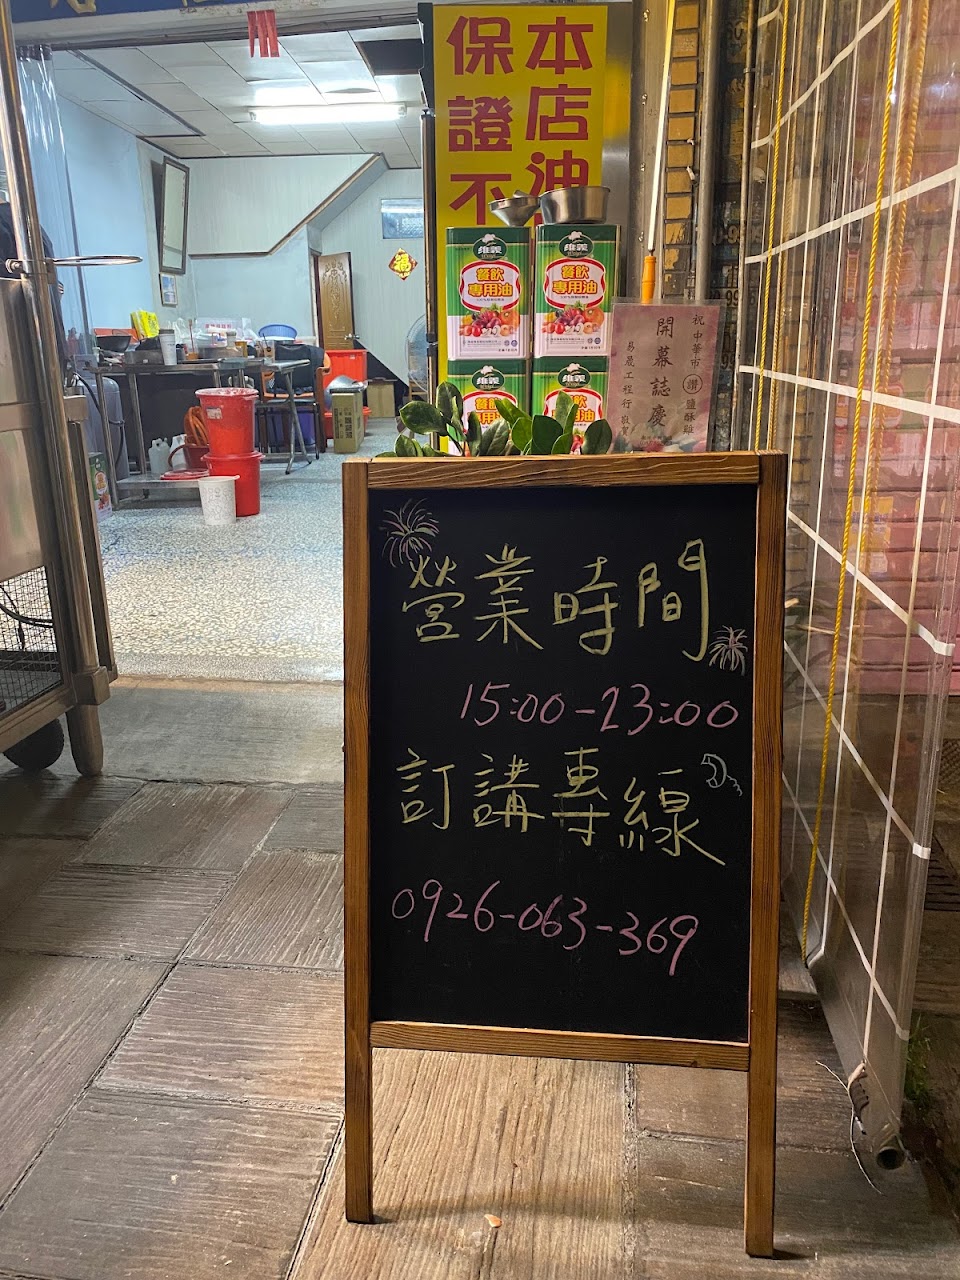 本店油
保證不
維義
餐飲
專用油
維義
餐飲
專用油
維義
餐飲
專用油
維義
餐飲
祝中華市讚鹽酥雞
開幕誌慶
易晟工程行 敬賀
營業時間
15:00-23:00
訂講專線
0926-063-369